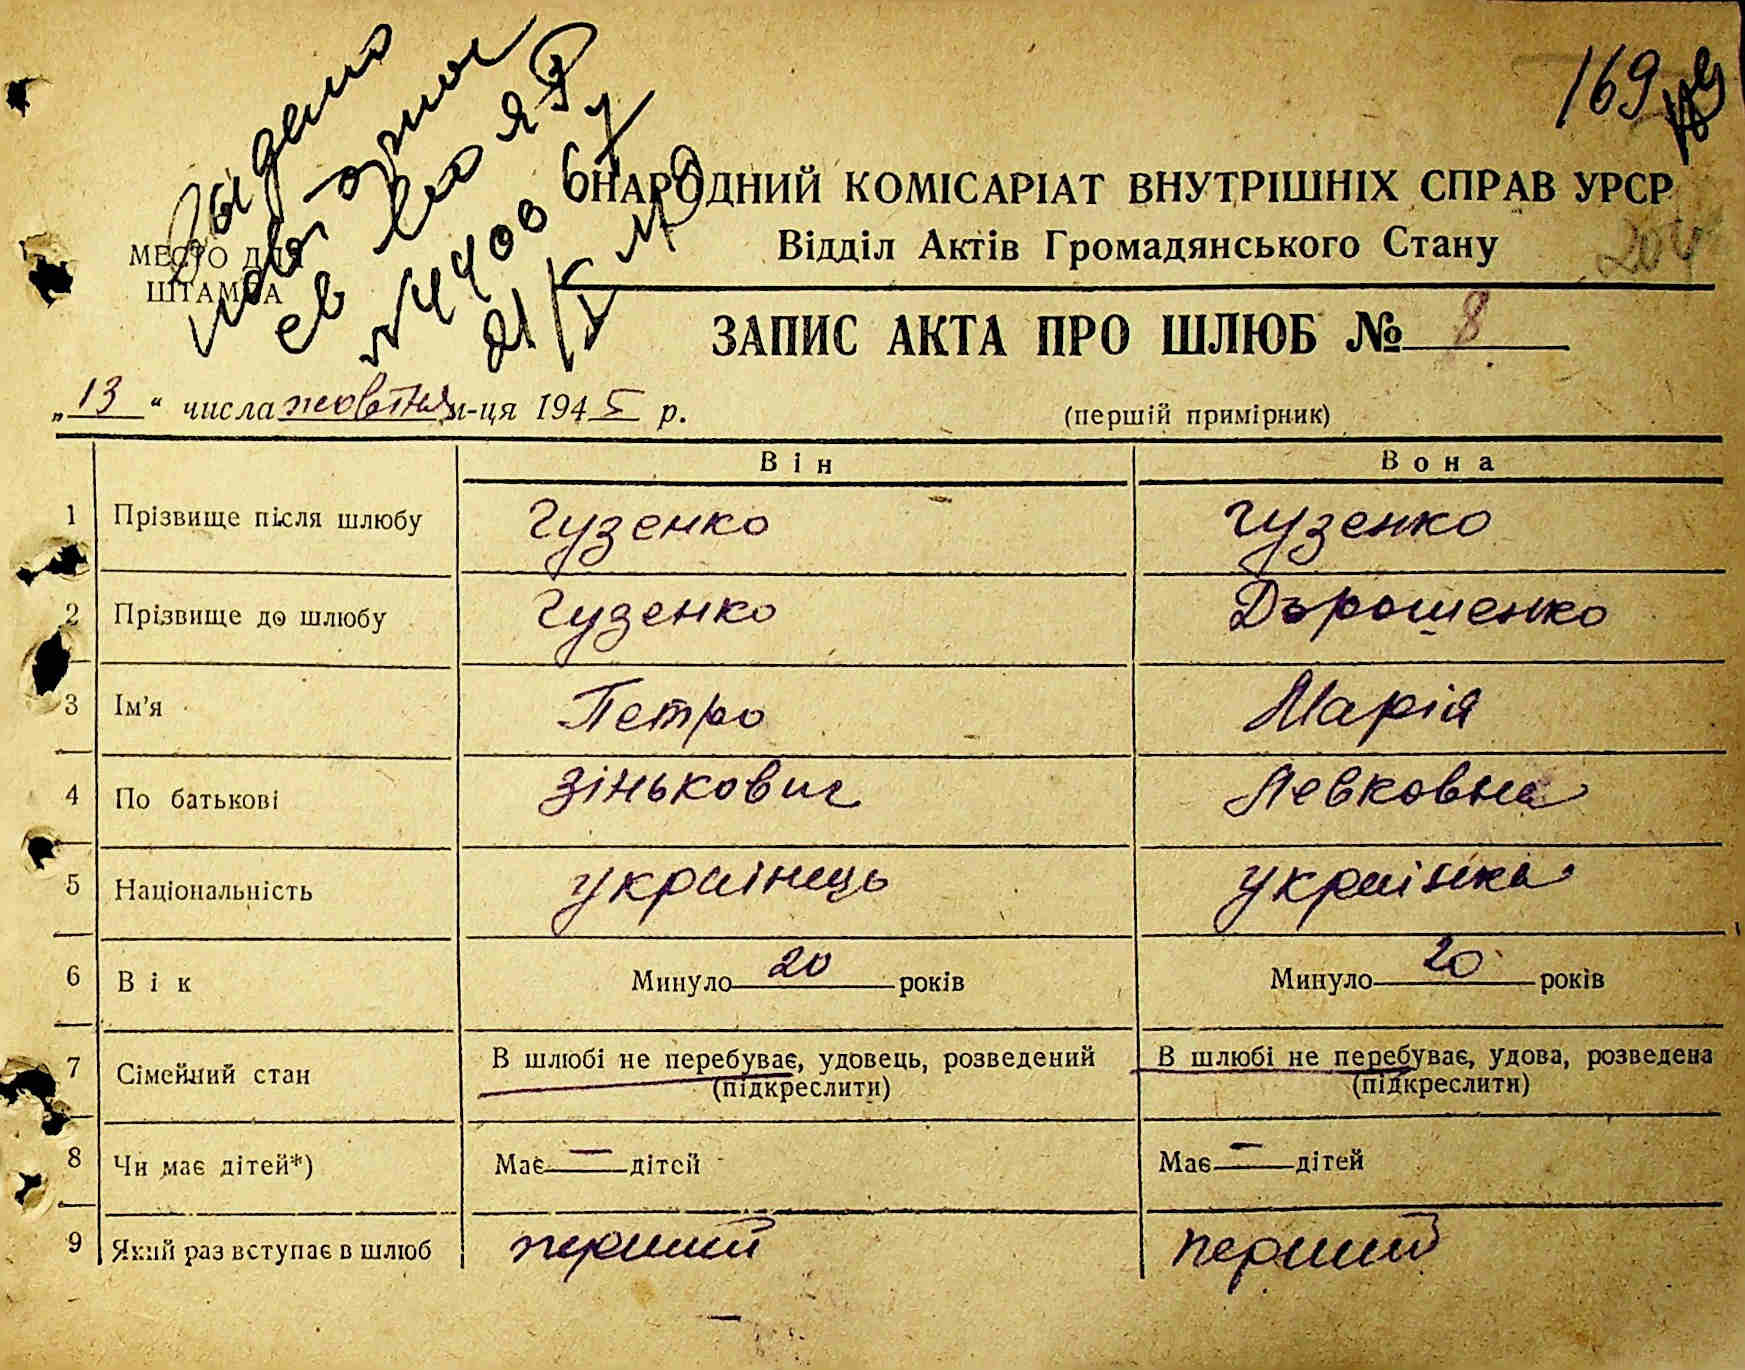 Выдано
повторное
св во яР
№ 440067
21/V
169
НАРОДНИЙ КОМІСАРІАТ ВНУТРІШНІХ СПРАВ УРСР
Відділ Актів Громадянського Стану
204
МЕСТО ДЛЯ
ШТАМПА
ЗАПИС АКТА ПРО ШЛЮБ № 8
„13“ числа жовтня м-ця 1945 р.
(першій примірник)
Він Вона
1 Прізвище після шлюбу Гузенко Гузенко
2 Прізвище до шлюбу Гузенко Дорошенко
3 Ім'я Петро Марія
4 По батькові Зінькович Левковна
5 Національність українець українка
6 Вік Минуло 20 років Минуло 20 років
7 Сімейний стан В шлюбі не перебуває, удовець, розведений В шлюбі не перебуває, удова, розведена
(підкреслити) (підкреслити)
8 Чи має дітей*) Має — дітей Має — дітей
9 Який раз вступає в шлюб перший перший